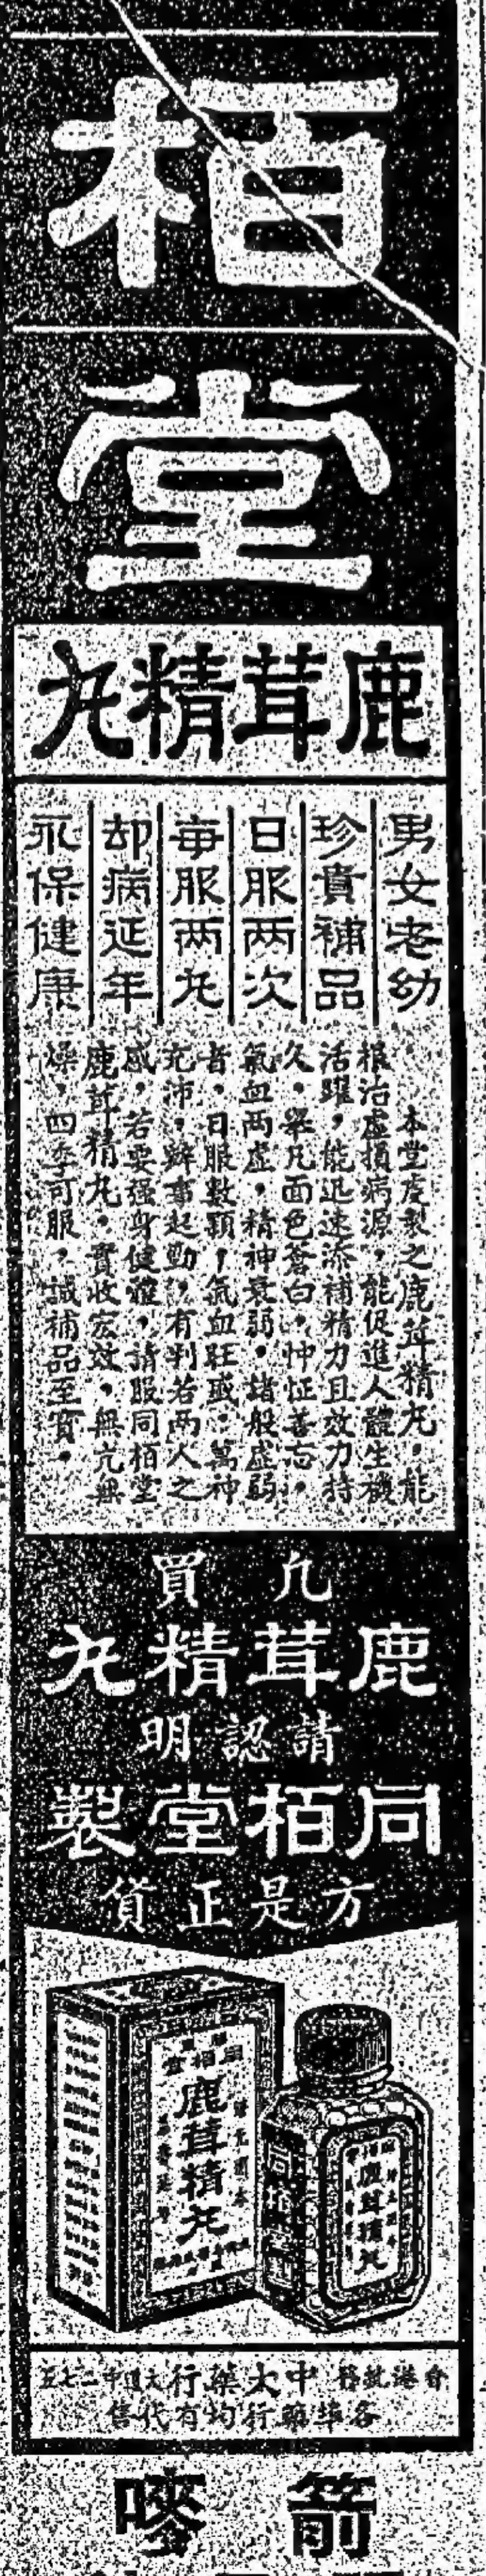 栢
堂
鹿茸精丸
男女老幼
珍貴補品
日服两次
每服两丸
却病延年
永保健康
本堂虔製之鹿茸精丸，能
根治虛損病源，能促進人體生殖
活躍，能迅速添補精力且效力特
久，舉凡面色蒼白，忡怔善忘，
氣血两虛，精神衰弱，諸般虛弱
者，日服數顆，氣血旺盛，萬神
充沛，辦事起勁，有判若两人之
感，若要强身健體，請服同栢堂
鹿茸精丸，實收宏效，無亢無
燥，四季可服，誠補品至寶。
凡買
鹿茸精丸
請認明
同栢堂製
方是正貨
鹿茸精丸
鹿茸精丸
中太藥行
各埠藥行均有代售
箭嘜